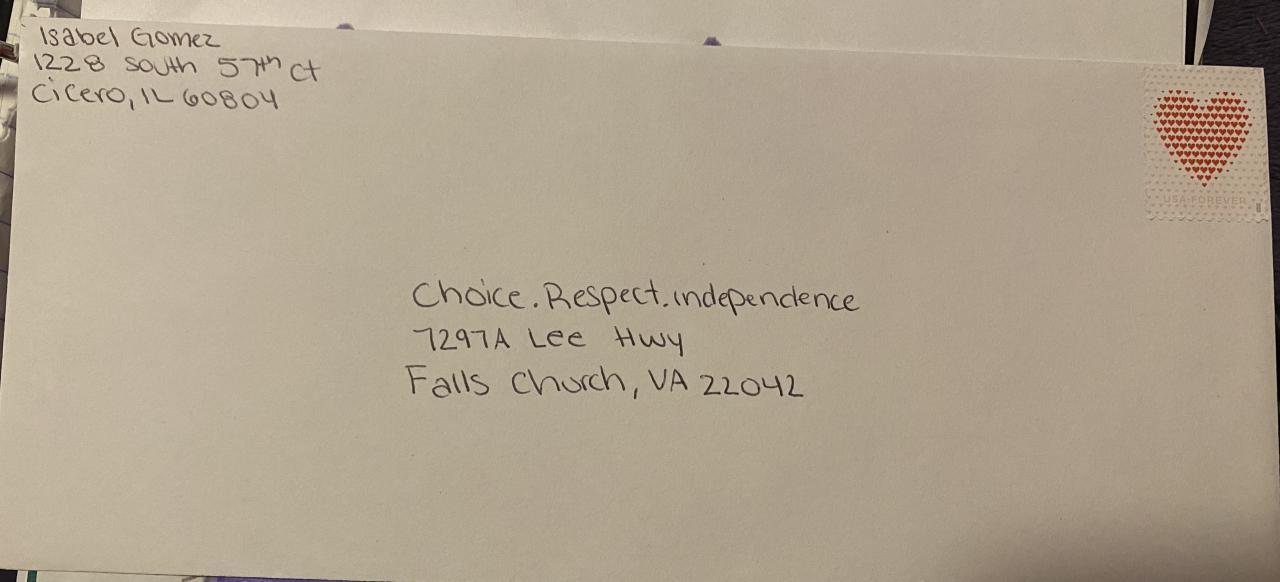 Isabel Gomez
1228 South 57th Ct
Cicero, IL 60804
USA FOREVER
Choice.Respect.independence
7297A Lee Hwy
Falls Church, VA 22042